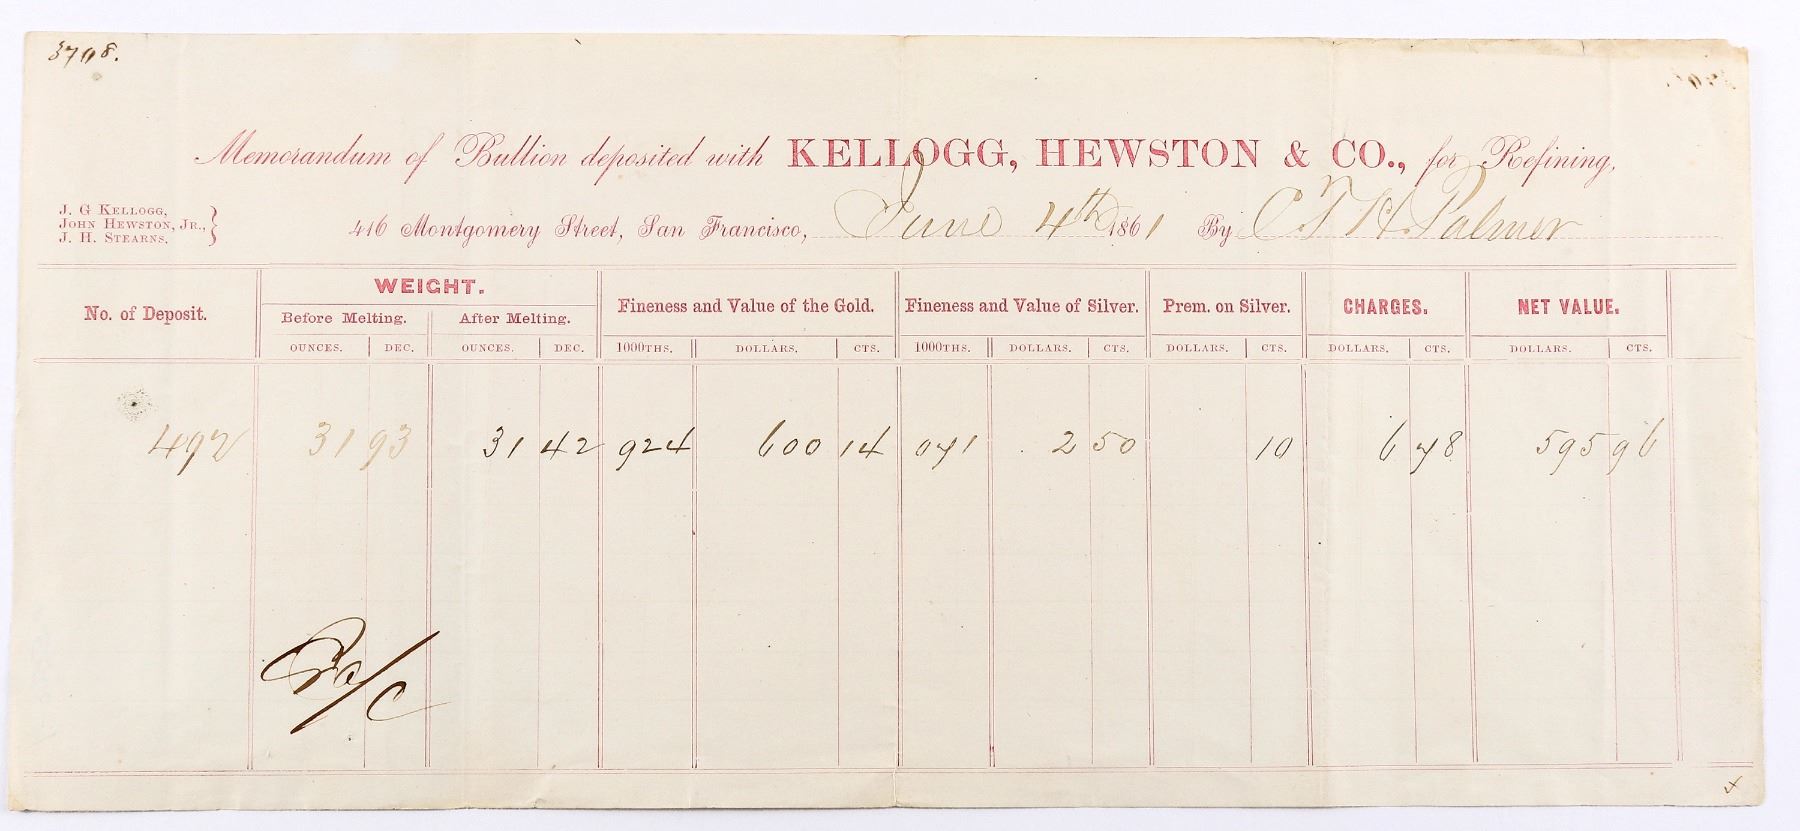 3798.
Memorandum of Bullion deposited with KELLOGG, HEWSTON & CO., for Refining,
J. G KELLOGG,
JOHN HEWSTON, JR.,
J. H. STEARNS.
416 Montgomery Street, San Francisco, June 4th 1861 By C. T. H. Palmer
No. of Deposit. WEIGHT. Fineness and Value of the Gold. Fineness and Value of Silver. Prem. on Silver. CHARGES. NET VALUE.
Before Melting. After Melting.
OUNCES. DEC. OUNCES. DEC. 1000THS. DOLLARS. CTS. 1000THS. DOLLARS. CTS. DOLLARS. CTS. DOLLARS. CTS. DOLLARS. CTS.
492 31 93 31 42 924 600 14 071 2 50 10 6 78 595 96